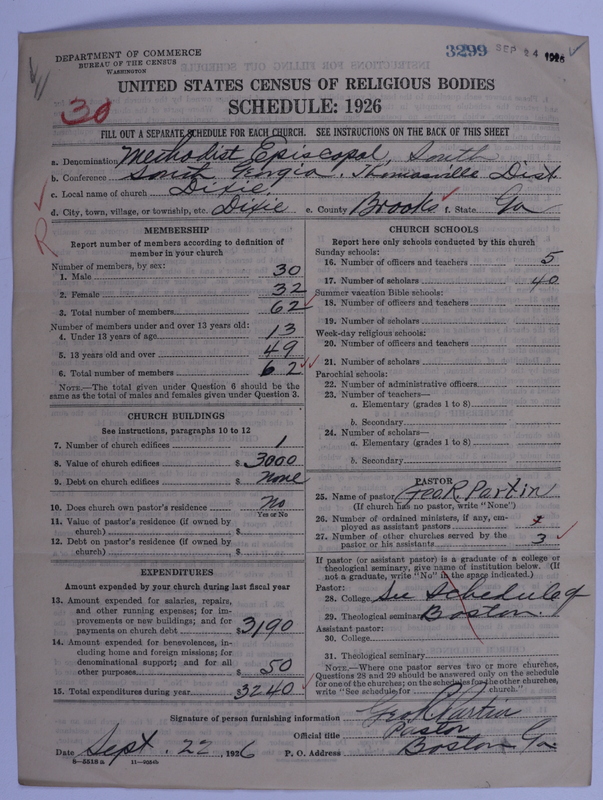 DEPARTMENT OF COMMERCE
BUREAU OF THE CENSUS
WASHINGTON
3299 SEP 24 1926
30
UNITED STATES CENSUS OF RELIGIOUS BODIES
SCHEDULE: 1926
FILL OUT A SEPARATE SCHEDULE FOR EACH CHURCH. SEE INSTRUCTIONS ON THE BACK OF THIS SHEET
a. Denomination Methodist Episcopal, South
b. Conference South Georgia. Thomasville Dist
c. Local name of church Dixie,
d. City, town, village, or township, etc. Dixie e. County Brooks f. State Ga
R
MEMBERSHIP
Report number of members according to definition of
member in your church
Number of members, by sex:
1. Male 30
2. Female 32
3. Total number of members 62
Number of members under and over 13 years old:
4. Under 13 years of age 13
5. 13 years old and over 49
6. Total number of members 62
NOTE.—The total given under Question 6 should be the
same as the total of males and females given under Question 3.
CHURCH BUILDINGS
See instructions, paragraphs 10 to 12
7. Number of church edifices 1
8. Value of church edifices $ 3000
9. Debt on church edifices $ none
10. Does church own pastor's residence no
Yes or No
11. Value of pastor's residence (if owned by
church) $
12. Debt on pastor's residence (if owned by
church) $
EXPENDITURES
Amount expended by your church during last fiscal year
13. Amount expended for salaries, repairs,
and other running expenses; for im-
provements or new buildings; and for
payments on church debt $ 3190
14. Amount expended for benevolences, in-
cluding home and foreign missions; for
denominational support; and for all
other purposes $ 50
15. Total expenditures during year $ 3240
CHURCH SCHOOLS
Report here only schools conducted by this church
Sunday schools:
16. Number of officers and teachers 5
17. Number of scholars 40
Summer vacation Bible schools:
18. Number of officers and teachers
19. Number of scholars
Week-day religious schools:
20. Number of officers and teachers
21. Number of scholars
Parochial schools:
22. Number of administrative officers
23. Number of teachers—
a. Elementary (grades 1 to 8)
b. Secondary
24. Number of scholars—
a. Elementary (grades 1 to 8)
b. Secondary
PASTOR
25. Name of pastor Geo R. Partin
(If church has no pastor, write "None")
26. Number of ordained ministers, if any, em-
ployed as assistant pastors
27. Number of other churches served by the
pastor or his assistants 3
If pastor (or assistant pastor) is a graduate of a college or
theological seminary, give name of institution below. (If
not a graduate, write "No" in the space indicated.)
Pastor:
28. College See Schedule of
29. Theological seminary Boston.
Assistant pastor:
30. College
31. Theological seminary
NOTE.—Where one pastor serves two or more churches,
Questions 28 and 29 should be answered only on the schedule
for one of the churches; on the schedules for the other churches,
write "See schedule for church."
Signature of person furnishing information Geo R Partin
Official title Pastor
Date Sept. 22, 1926 P. O. Address Boston Ga
8—5512a 11—9054b